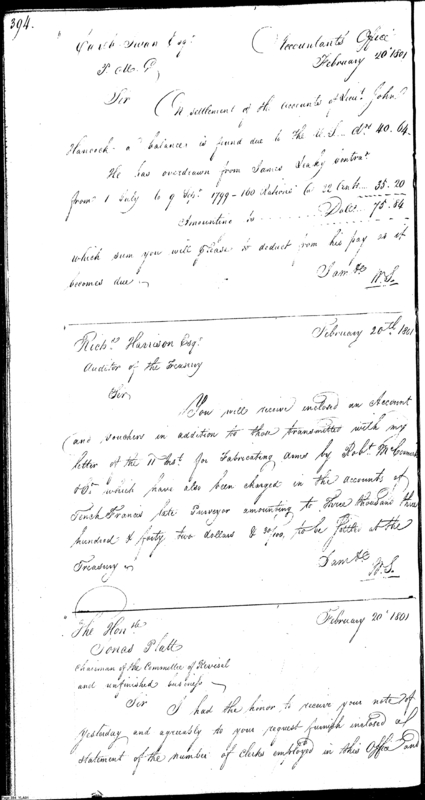 394.
Caleb Swan Esqr.
P. M. G.
Accountants Office
February 20th 1801
Sir
On settlement of the accounts of Lieut. John
Hancock a balance is found due to the U.S. Drs 40.64
He has overdrawn from James contrar.
from 1 July to 9 1799 - 160 Rations @ 22 Cents 35.20
Amounting to Dols. 75.84
which sum you will please to deduct from his pay as it
becomes due
I am &c
W.S.
February 20th 1801
Richd. Harrison Esqr.
Auditor of the Treasury
Sir
You will receive enclosed an Account
and vouchers in addition to those transmitted with my
letter of the 11 Inst. for Fabricating arms by Robt. McCormick
& Co. which have also been charged in the accounts of
Tench Francis late Purveyor amounting to three thousand three
hundred & forty two dollars & 30/100, to be settled at the
Treasury
I am &c
W.S.
February 20th 1801
The Honble
Jonas Platt
Chairman of the Committee of Revisal
and unfinished business
Sir I had the honor to receive your note of
yesterday and agreeably to your request furnish enclosed a
statement of the number of clerks employed in this Office and